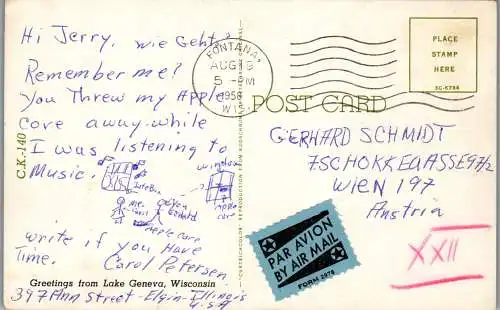 Hi Jerry, wie Gehts?
Remember me?
You Threw my Apple
core away while
I was listening to
Music.
window
me.
Carol
Apple core
Apple
core
write if you Have
Time. Carol Petersen
Greetings from Lake Geneva, Wisconsin
397 Ann Street - Elgin - Illinois
U.S.A
C.K.-140
FONTANA
AUG 9
5 - PM
1956
WIS.
POST CARD
PLACE
STAMP
HERE
GERHARD SCHMIDT
ZSCHOKKEGASSE 97/2
WIEN 197
Austria
PAR AVION
BY AIR MAIL
FORM 2978
XXII